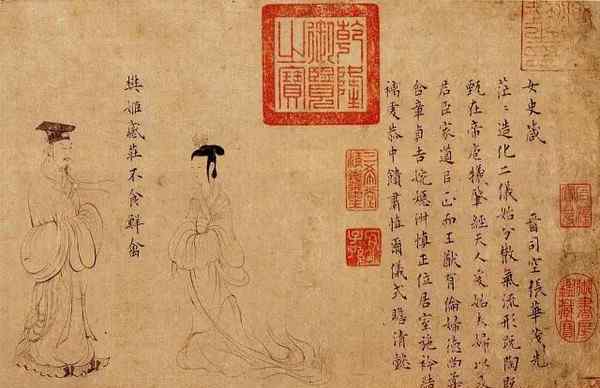 女史箴
晉司空張華茂先
茫〻造化二儀始分散氣流形既陶
甄在帝庖犧肇經天人爰始夫婦以及
君臣家道以正而王猷有倫婦德尚柔
含章貞吉婉嫕淑慎正位居室施衿結
褵虔恭中饋肅慎爾儀式瞻清懿
乾隆御覽之寶
三希堂精鑑璽
宜子孫
樊姬感莊不食鮮禽